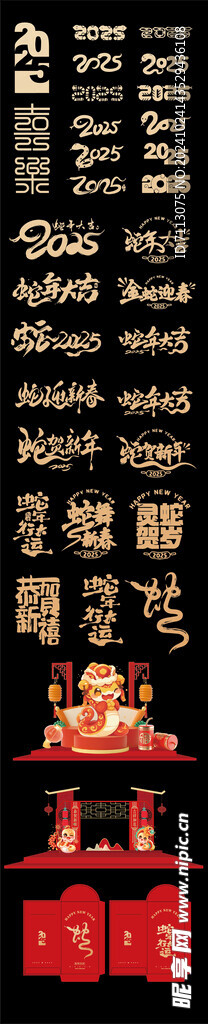 2025
2025
2025
喜乐
2025
2025
2025
2025
2025
2025
2025
2025
2025
2025
2025
蛇年大吉
2025
HAPPY NEW YEAR
蛇年大吉
2025
蛇年大吉
金蛇迎春
蛇2025
蛇年大吉
蛇迎新春
蛇年大吉
蛇贺新年
2025
HAPPY NEW YEAR
蛇贺新年
2025
蛇年行大运
HAPPY NEW YEAR
蛇舞新春
2025
HAPPY NEW YEAR
灵蛇贺岁
2025
恭贺新禧
蛇年行大运
蛇
2025
HAPPY NEW YEAR
蛇
2025
HAPPY NEW YEAR
昵享网 www.nipic.cn
NO:20241024143529436108